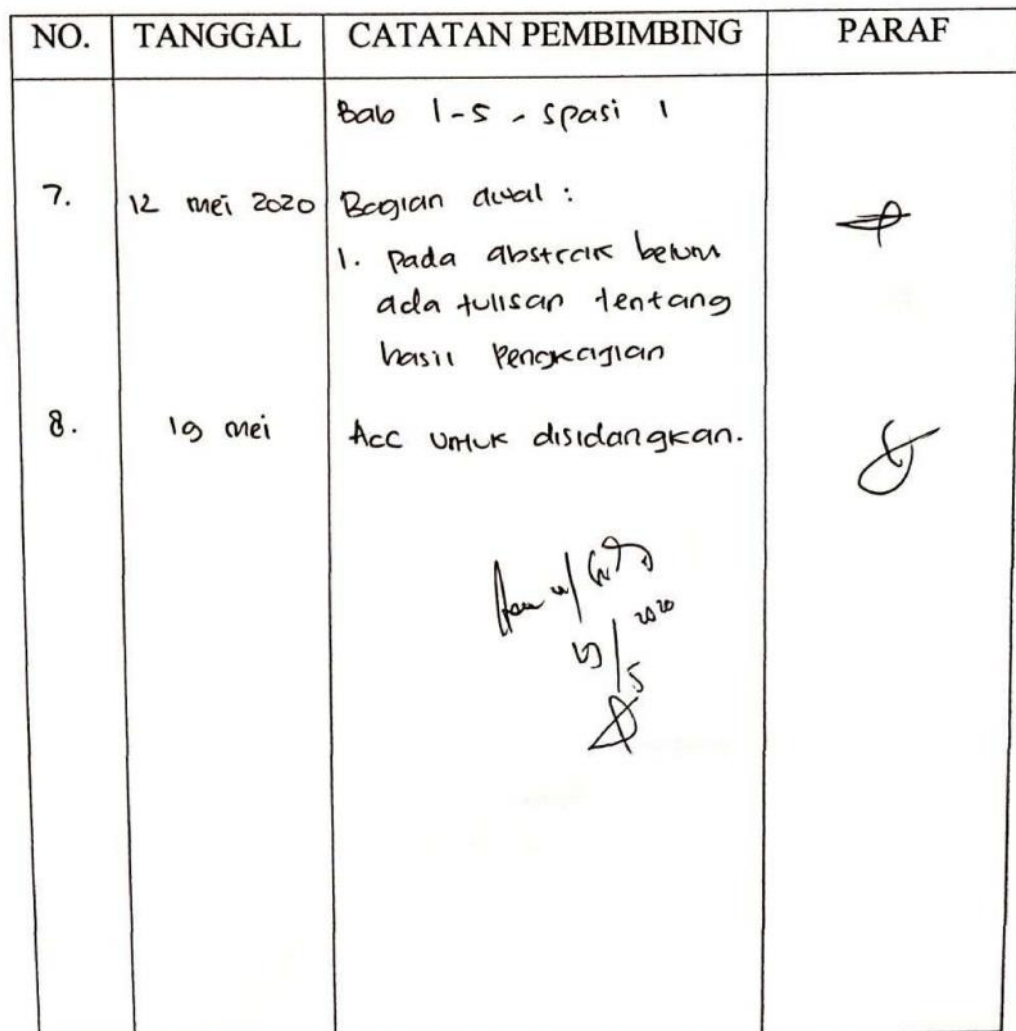 NO. TANGGAL CATATAN PEMBIMBING PARAF
Bab 1-5 - spasi 1
7. 12 mei 2020 Bagian awal :
1. pada abstrak belum
ada tulisan tentang
hasil pengkajian
8. 19 mei Acc untuk disidangkan.
2020
5